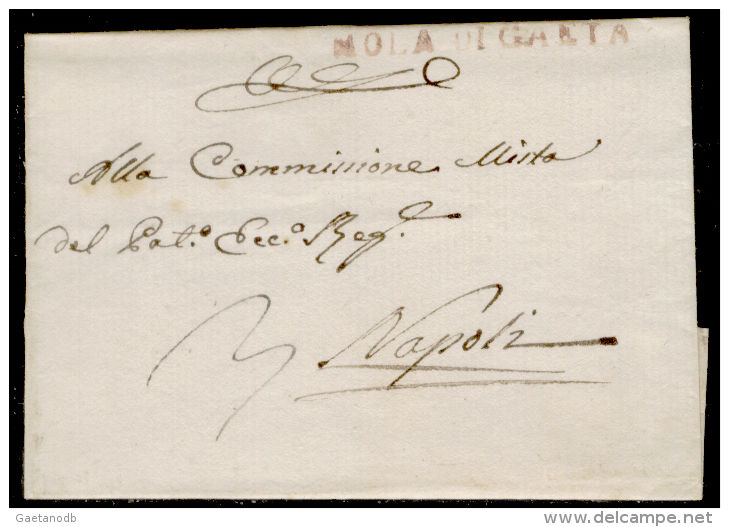 MOLA DI GAETA
Alla Commissione Mista
del Pat.º Ecc.º Reg.e
Napoli
Gaetanodb
www.delcampe.net